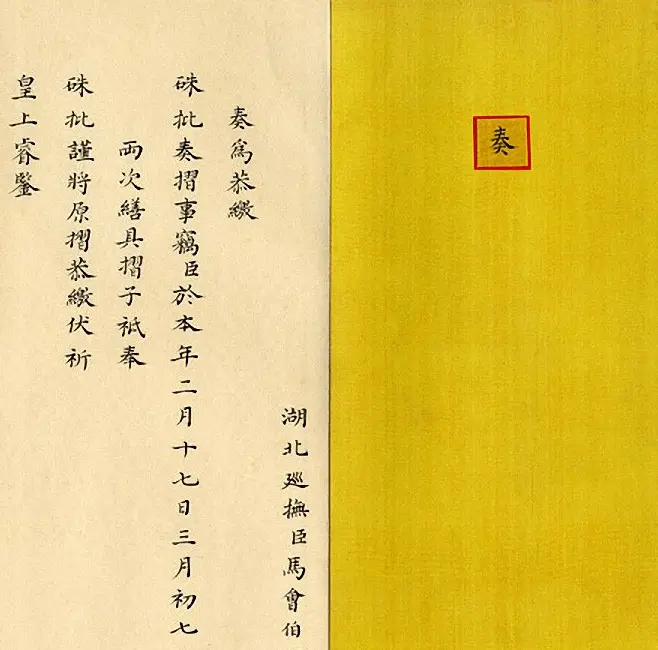 奏
湖北廵撫臣馬會伯
奏爲恭繳
硃批奏摺事竊臣於本年二月十七日三月初七
兩次繕具摺子祗奉
硃批謹將原摺恭繳伏祈
皇上睿鑒